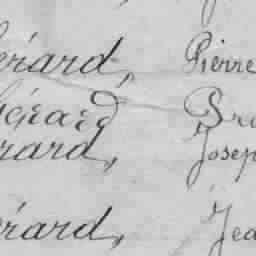 Gérard, Pierre
Gérard
rard, Josep
érard, Jea